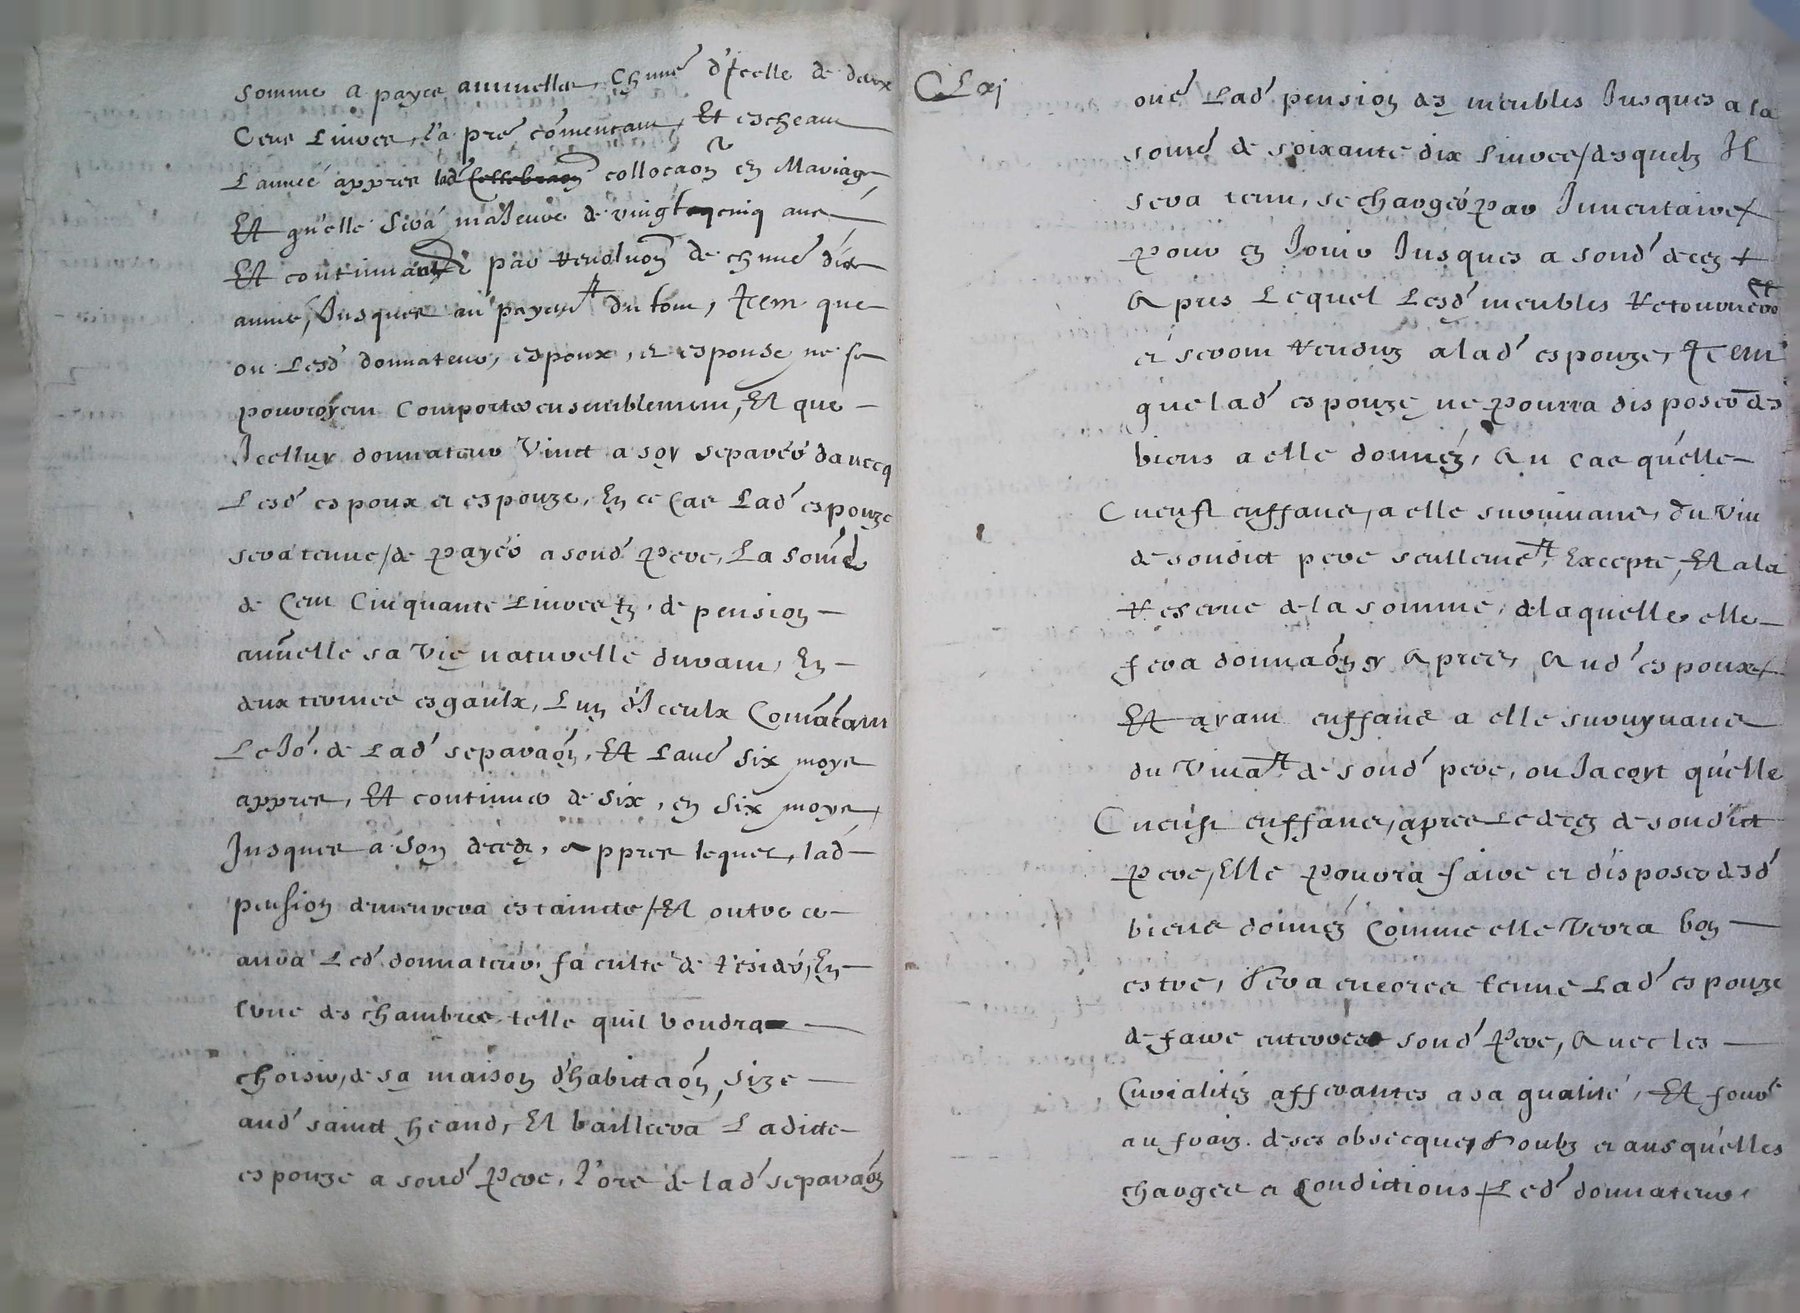 somme a payer annuelle, chune d'icelle de deux
Cens Livres, la pre comencant, Et escheant
L'année appres lad collocaon en Mariage
Et qu'elle sera majeure de vingt cinq ans
Et continuant par revoluon de chune d'ix
année, Jusques au payemt du tout, Item que
ou Lesd donnateur, espoux, et espouse ne se
pourroyent Comporter ensemblement, Et que
Icelluy donnateur Vint a soy separer davecq
Lesd espoux et espouze, En ce Cas Lad espouze
sera tenue de payer a sond Pere, La some
de Cent Cinquante Livres tz, de pension
annuelle sa Vie naturelle durant, En
deux termes esgaulx, L'un d'Iceulx Comencant
Le Jor de Lad separaon, Et Laue six moys
appres, Et continuer de six, en six moys
Jusques a son decedz, appres lequel, lad
pension demeurera estaincte, Et outre ce
aura Led donnateur faculte de resider, En
lune des chambres, telle quil voudra
choisir, de sa maison d'habittaon, size
aud sainct heand, Et baillera Ladicte
espouze a sond Pere, l'ors de lad separaon
CLxj
oue Lad pension des meubles Jusques a la
some de soixante dix Livres, desquelz Il
sera tenu, se charger par Inventaire
pour en Jouir Jusques a sond deces
Apres Lequel Lesd meubles retourneront
et seront renduz a lad espouze, Item
que lad espouze ne pourra disposer des
biens a elle donnéz, Au cas qu'elle
n'eust enffans, a elle survivans, du Viv
de sondit pere seullemet, Excepte, Et a la
reserve de la somme, de laquelle elle
fera donnaon cy Apres, Aud espoux
Et ayant enffans a elle survyvans
du Vivat de sond pere, ou Jacoyt qu'elle
n'eust enffans, apres Le decez de sondict
Pere, Elle Pourra faire et disposer desd
biens donnéz Comme elle verra bon
estre, Sera encores tenue Lad espouze
de faire enterrer sond Pere, Avec les
Curialitéz afferantes a sa qualité, Et four
au fraiz de ses obsecques, Soubz et ausquelles
charges et Condictions, Led donnateur